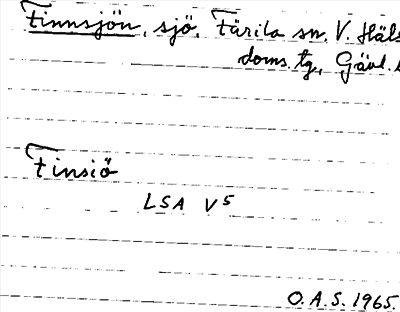 Finnsjön, sjö, Färila sn. V. Häls
doms. tg., Gävl.
Finsiö
LSA V5
O.A.S. 1965.